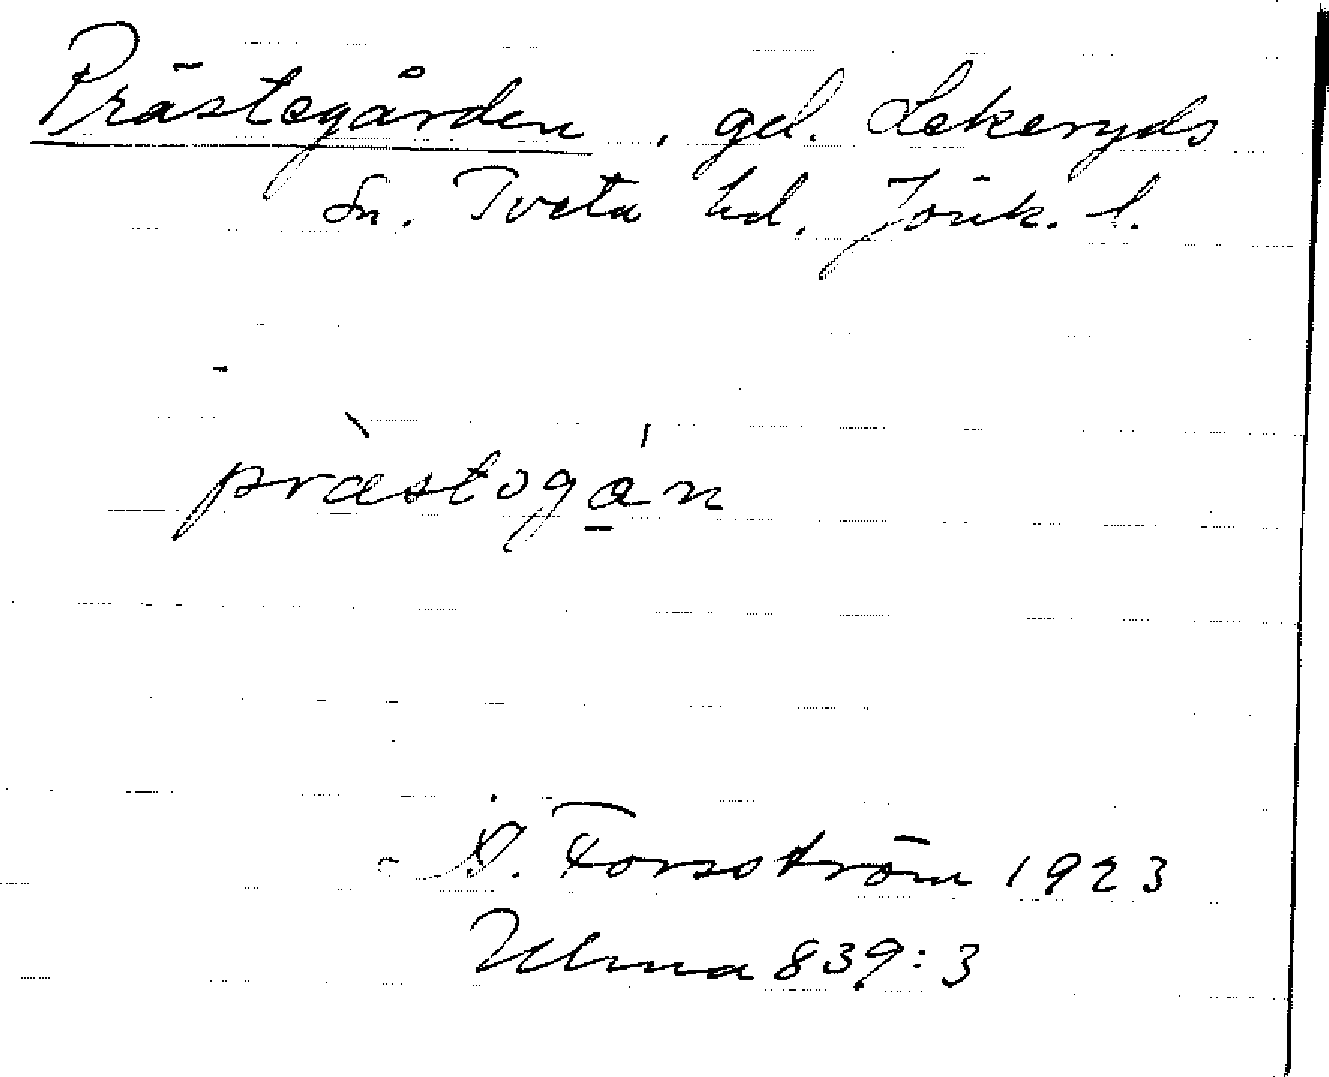 Prästegården, gd. Lekeryds
Sn. Tveta hd. Jönk. l.
præ̀stogá̱n
Forsström 1923
Ulma 839:3